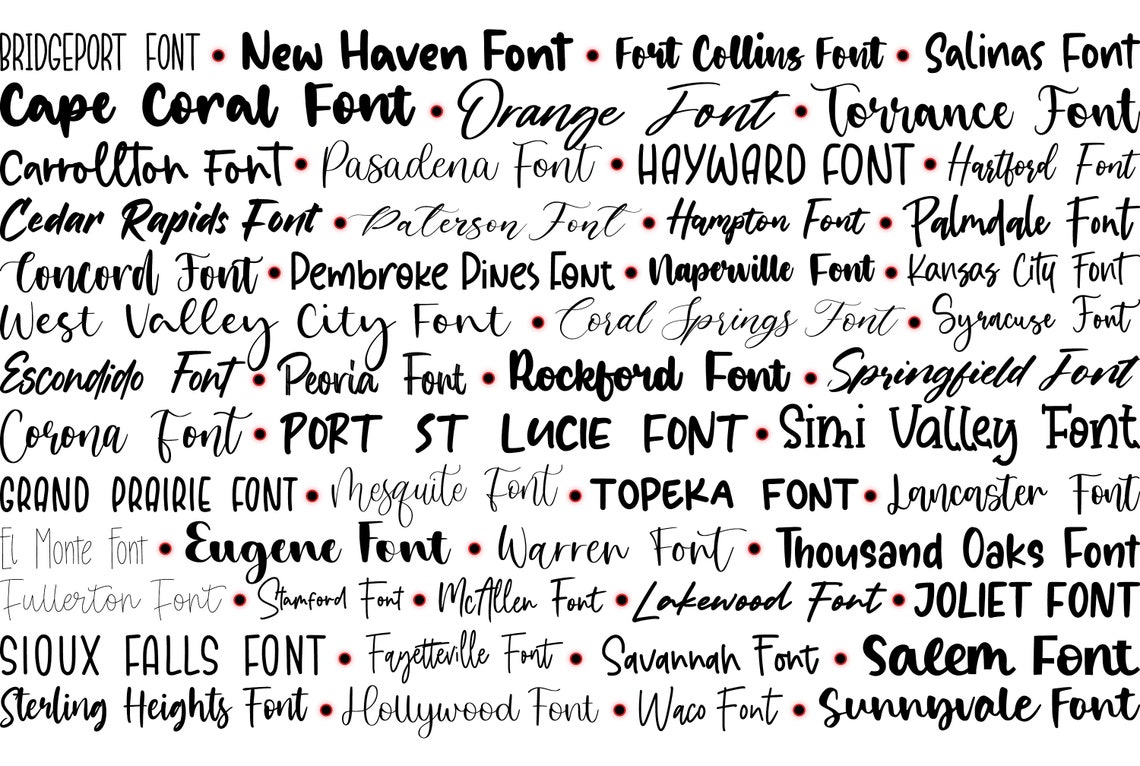 BRIDGEPORT FONT • New Haven Font • Fort Collins Font • Salinas Font
Cape Coral Font • Orange Font • Torrance Font
Carrollton Font • Pasadena Font • HAYWARD FONT • Hartford Font
Cedar Rapids Font • Paterson Font • Hampton Font • Palmdale Font
Concord Font • Pembroke Pines Font • Naperville Font • Kansas City Font
West Valley City Font • Coral Springs Font • Syracuse Font
Escondido Font • Peoria Font • Rockford Font • Springfield Font
Corona Font • PORT ST LUCIE FONT • Simi Valley Font
GRAND PRAIRIE FONT • Mesquite Font • TOPEKA FONT • Lancaster Font
El Monte Font • Eugene Font • Warren Font • Thousand Oaks Font
Fullerton Font • Stamford Font • McAllen Font • Lakewood Font • JOLIET FONT
SIOUX FALLS FONT • Fayetteville Font • Savannah Font • Salem Font
Sterling Heights Font • Hollywood Font • Waco Font • Sunnyvale Font